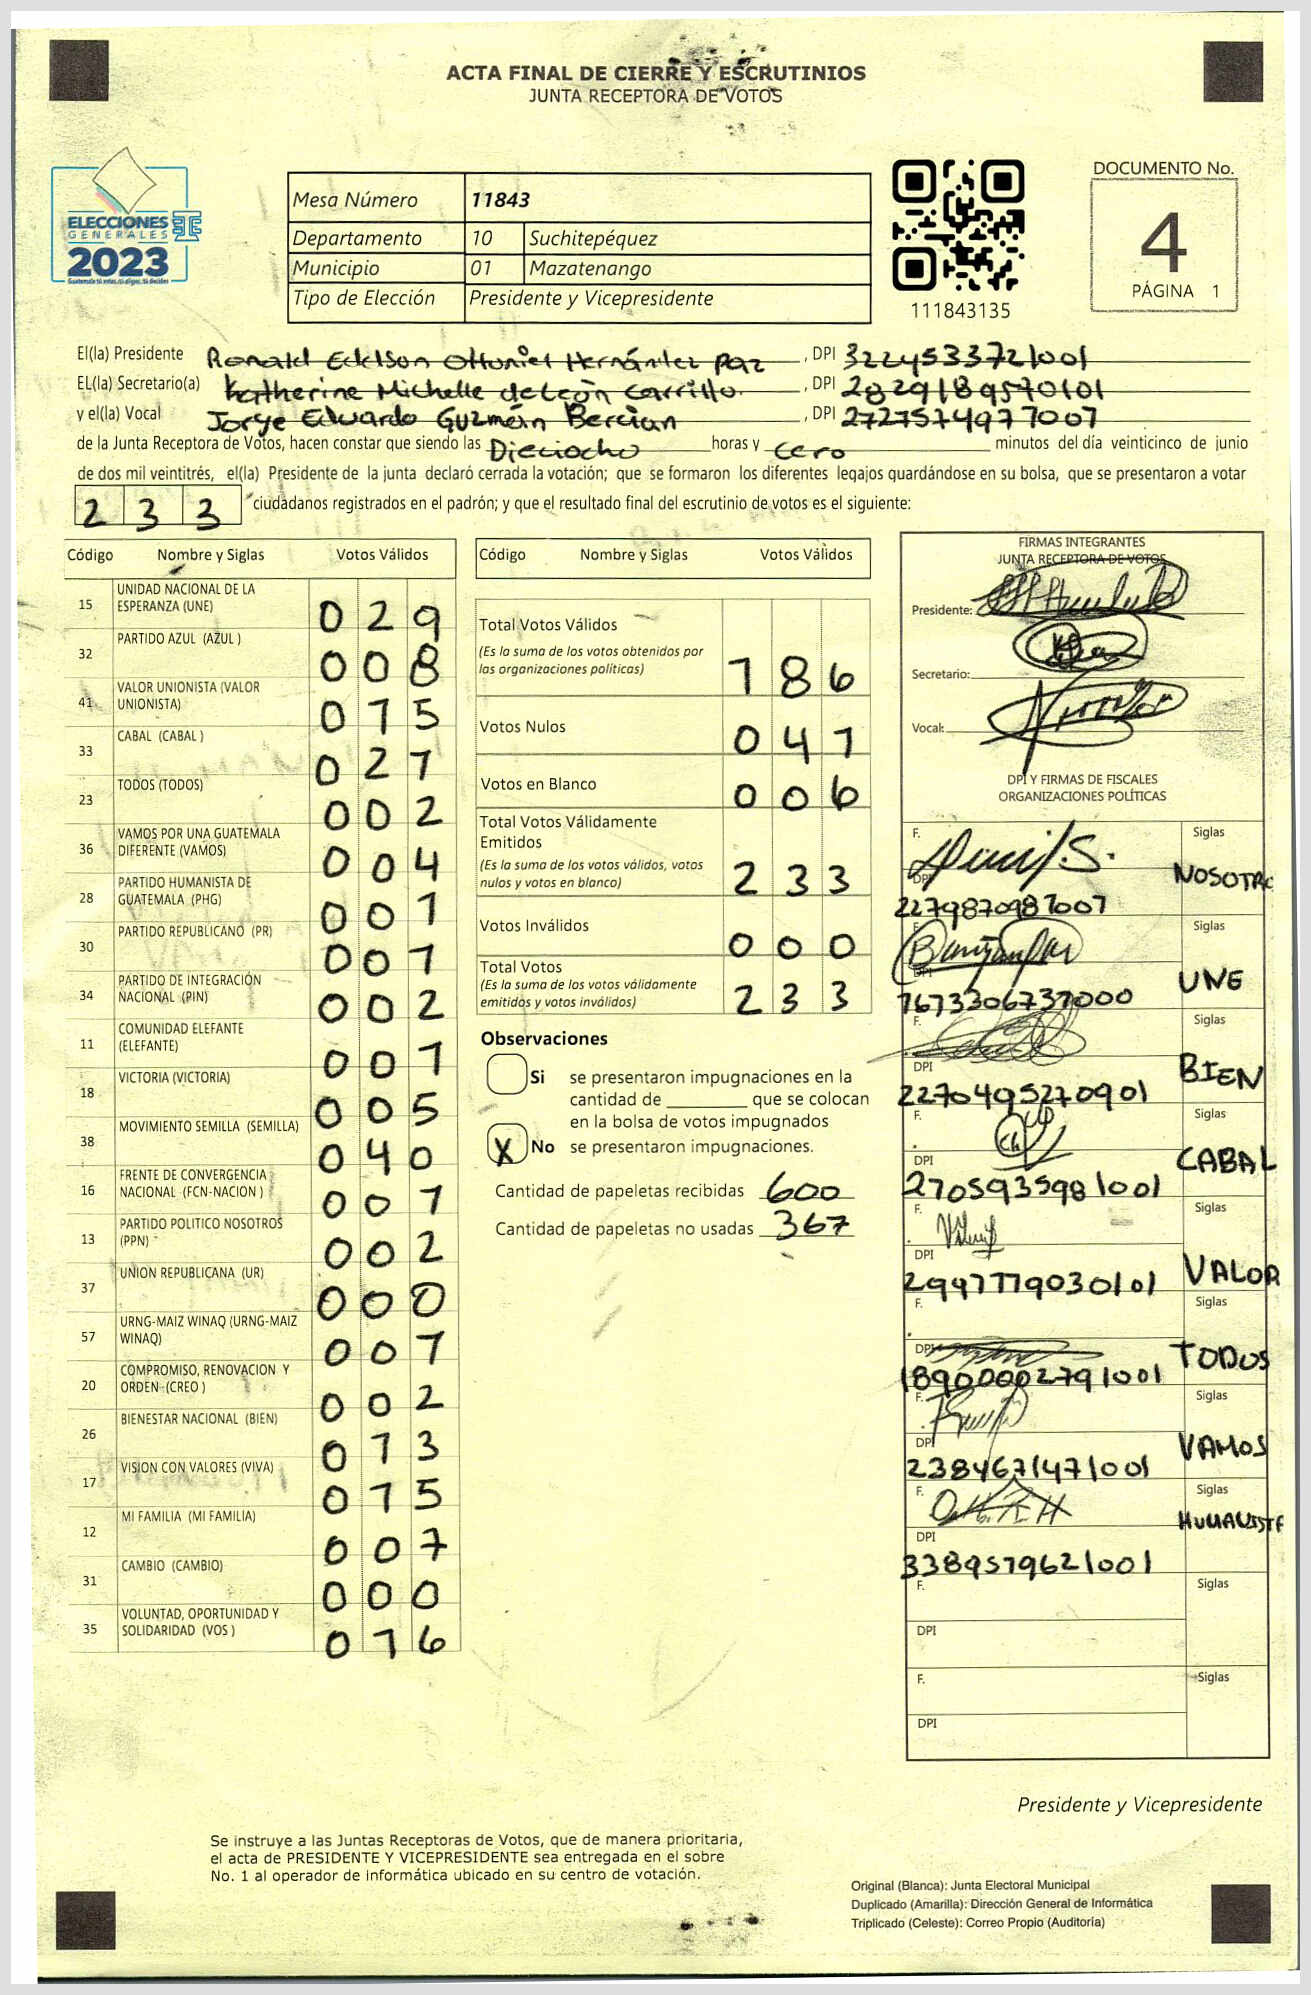 ACTA FINAL DE CIERRE Y ESCRUTINIOS
JUNTA RECEPTORA DE VOTOS
ELECCIONES
GENERALES
2023
Guatemala tú votas, tú eliges, tú decides
Mesa Número 11843
Departamento 10 Suchitepéquez
Municipio 01 Mazatenango
Tipo de Elección Presidente y Vicepresidente
111843135
DOCUMENTO No.
4
PÁGINA 1
El(la) Presidente Ronald Edelson Ottoniel Hernández Paz , DPI 3224533721001
EL(la) Secretario(a) Katherine Michelle deLeòn Carrillo , DPI 2829189570101
y el(la) Vocal Jorge Eduardo Guzmán Bercian , DPI 2727574977007
de la Junta Receptora de Votos, hacen constar que siendo las Dieciocho horas y cero minutos del día veinticinco de junio
de dos mil veintitrés, el(la) Presidente de la junta declaró cerrada la votación; que se formaron los diferentes legajos guardándose en su bolsa, que se presentaron a votar
233 ciudadanos registrados en el padrón; y que el resultado final del escrutinio de votos es el siguiente:
Código Nombre y Siglas Votos Válidos
15 UNIDAD NACIONAL DE LA ESPERANZA (UNE) 029
32 PARTIDO AZUL (AZUL ) 008
41 VALOR UNIONISTA (VALOR UNIONISTA) 015
33 CABAL (CABAL ) 021
23 TODOS (TODOS) 002
36 VAMOS POR UNA GUATEMALA DIFERENTE (VAMOS) 004
28 PARTIDO HUMANISTA DE GUATEMALA (PHG) 001
30 PARTIDO REPUBLICANO (PR) 001
34 PARTIDO DE INTEGRACIÓN NACIONAL (PIN) 002
11 COMUNIDAD ELEFANTE (ELEFANTE) 001
18 VICTORIA (VICTORIA) 005
38 MOVIMIENTO SEMILLA (SEMILLA) 040
16 FRENTE DE CONVERGENCIA NACIONAL (FCN-NACION ) 001
13 PARTIDO POLITICO NOSOTROS (PPN) 002
37 UNION REPUBLICANA (UR) 000
57 URNG-MAIZ WINAQ (URNG-MAIZ WINAQ) 001
20 COMPROMISO, RENOVACION Y ORDEN (CREO ) 002
26 BIENESTAR NACIONAL (BIEN) 013
17 VISION CON VALORES (VIVA) 015
12 MI FAMILIA (MI FAMILIA) 007
31 CAMBIO (CAMBIO) 000
35 VOLUNTAD, OPORTUNIDAD Y SOLIDARIDAD (VOS ) 016
Código Nombre y Siglas Votos Válidos
Total Votos Válidos
(Es la suma de los votos obtenidos por
las organizaciones políticas) 186
Votos Nulos 041
Votos en Blanco 006
Total Votos Válidamente
Emitidos
(Es la suma de los votos válidos, votos
nulos y votos en blanco) 233
Votos Inválidos 000
Total Votos
(Es la suma de los votos válidamente
emitidos y votos inválidos) 233
Observaciones
Si se presentaron impugnaciones en la
cantidad de ________ que se colocan
en la bolsa de votos impugnados
X No se presentaron impugnaciones.
Cantidad de papeletas recibidas 600
Cantidad de papeletas no usadas 367
FIRMAS INTEGRANTES
JUNTA RECEPTORA DE VOTOS
Presidente:
Secretario:
Vocal:
DPI Y FIRMAS DE FISCALES
ORGANIZACIONES POLÍTICAS
F. Siglas
DPI NOSOTRO
2279870987007
F. Siglas
DPI UNE
1673306737000
F. Siglas
DPI BIEN
2270495270901
F. Siglas
DPI CABAL
2705935981001
F. Siglas
DPI VALOR
2947779030101
F. Siglas
DPI TODOS
18900002791001
F. Siglas
DPI VAMOS
2384671471001
F. Siglas
DPI HUMANISTA
3389579621001
F. Siglas
DPI
F. Siglas
DPI
Presidente y Vicepresidente
Se instruye a las Juntas Receptoras de Votos, que de manera prioritaria,
el acta de PRESIDENTE Y VICEPRESIDENTE sea entregada en el sobre
No. 1 al operador de informática ubicado en su centro de votación.
Original (Blanca): Junta Electoral Municipal
Duplicado (Amarilla): Dirección General de Informática
Triplicado (Celeste): Correo Propio (Auditoría)